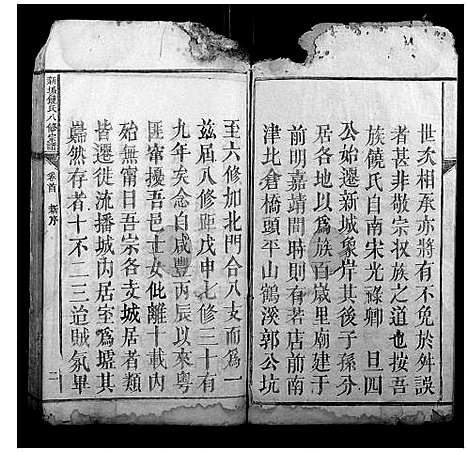 世次相承亦將有不免於舛誤
者甚非敬宗收族之道也按吾
族饒氏自南宋光祿卿 旦四
公始遷新城象岸其後子孫分
居各地以爲族百歲里廟建于
前明嘉靖間時則有若店前南
津北倉橋頭平山鶴溪郭公坑
至六修加北門合八支而爲一
兹屆八修距戊申七修三十有
九年矣念自咸豐丙辰以來粵
匪竄擾吾邑士女仳離十載內
殆無甯日吾宗各支城居者類
皆遷徙流播城內居室爲墟其
巋然存者十不二三迨賊氛畢
饒氏八修宗譜
卷首
新序
二